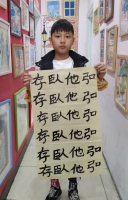 存臥他弘
存臥他弘
存臥他弘
存臥他弘
存臥他弘
存臥他弘